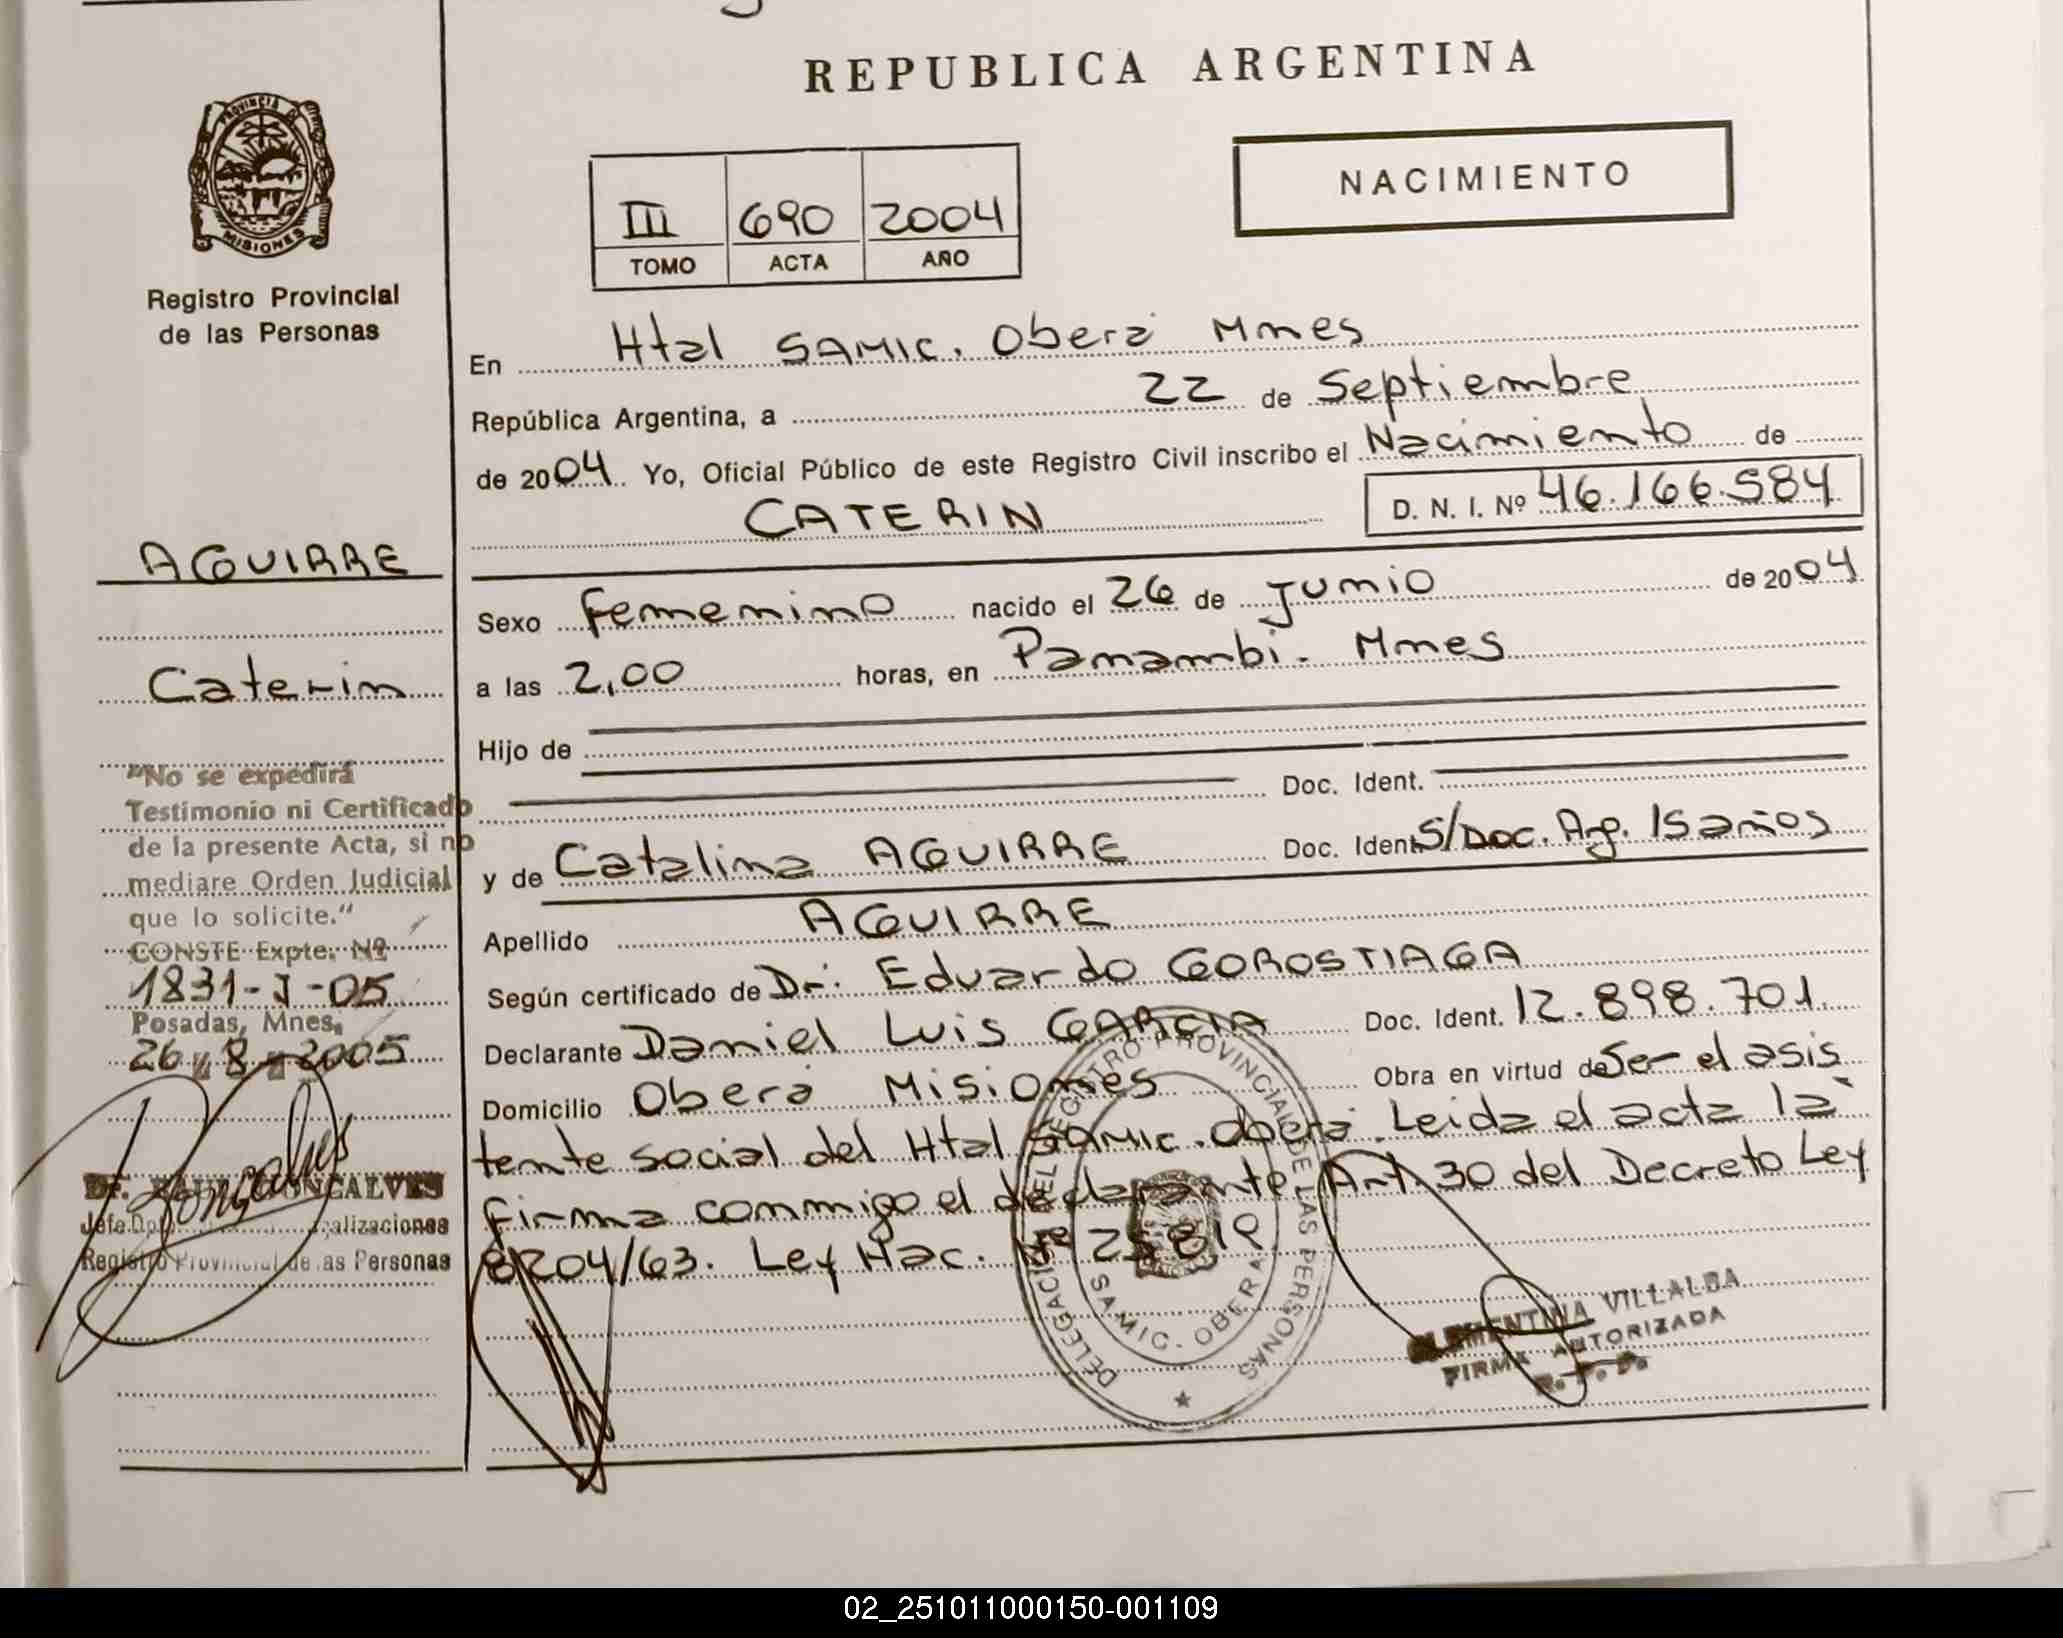 REPUBLICA ARGENTINA
PROVINCIA DE
MISIONES
Registro Provincial
de las Personas
NACIMIENTO
III 690 2004
TOMO ACTA AÑO
En Htal SAMIC. Oberá Mnes
República Argentina, a 22 de Septiembre
de 2004 Yo, Oficial Público de este Registro Civil inscribo el Nacimiento de
CATERIN
D. N. I. Nº 46.166.584
AGUIRRE
Caterin
Sexo femenino nacido el 26 de Junio de 2004
a las 2,00 horas, en Panambi. Mnes
Hijo de
Doc. Ident.
y de Catalina AGUIRRE Doc. Ident. S/Doc. Arg. 15 años
Apellido AGUIRRE
Según certificado de Dr: Eduardo GOROSTIAGA
Declarante Daniel Luis GARCIA Doc. Ident. 12.898.701.
Domicilio Oberá Misiones Obra en virtud de Ser el asis
tente social del Htal SAMIC. Oberá. Leida el acta la
firma conmigo el declarante. Art. 30 del Decreto Ley
8204/63. Ley Nac. Nº 25819
"No se expedirá
Testimonio ni Certificado
de la presente Acta, si no
mediare Orden Judicial
que lo solicite."
CONSTE Expte. Nº
1831-J-05
Posadas, Mnes,
26 8 2005
Gonçalves
Dr. GONCALVES
Jefe Dpto.
Registro Provincial de las Personas
DELEGACION DEL REGISTRO PROVINCIAL DE LAS PERSONAS
SAMIC. OBERA
CLEMENTINA VILLALBA
FIRMA AUTORIZADA
R. P. P.
02_251011000150-001109